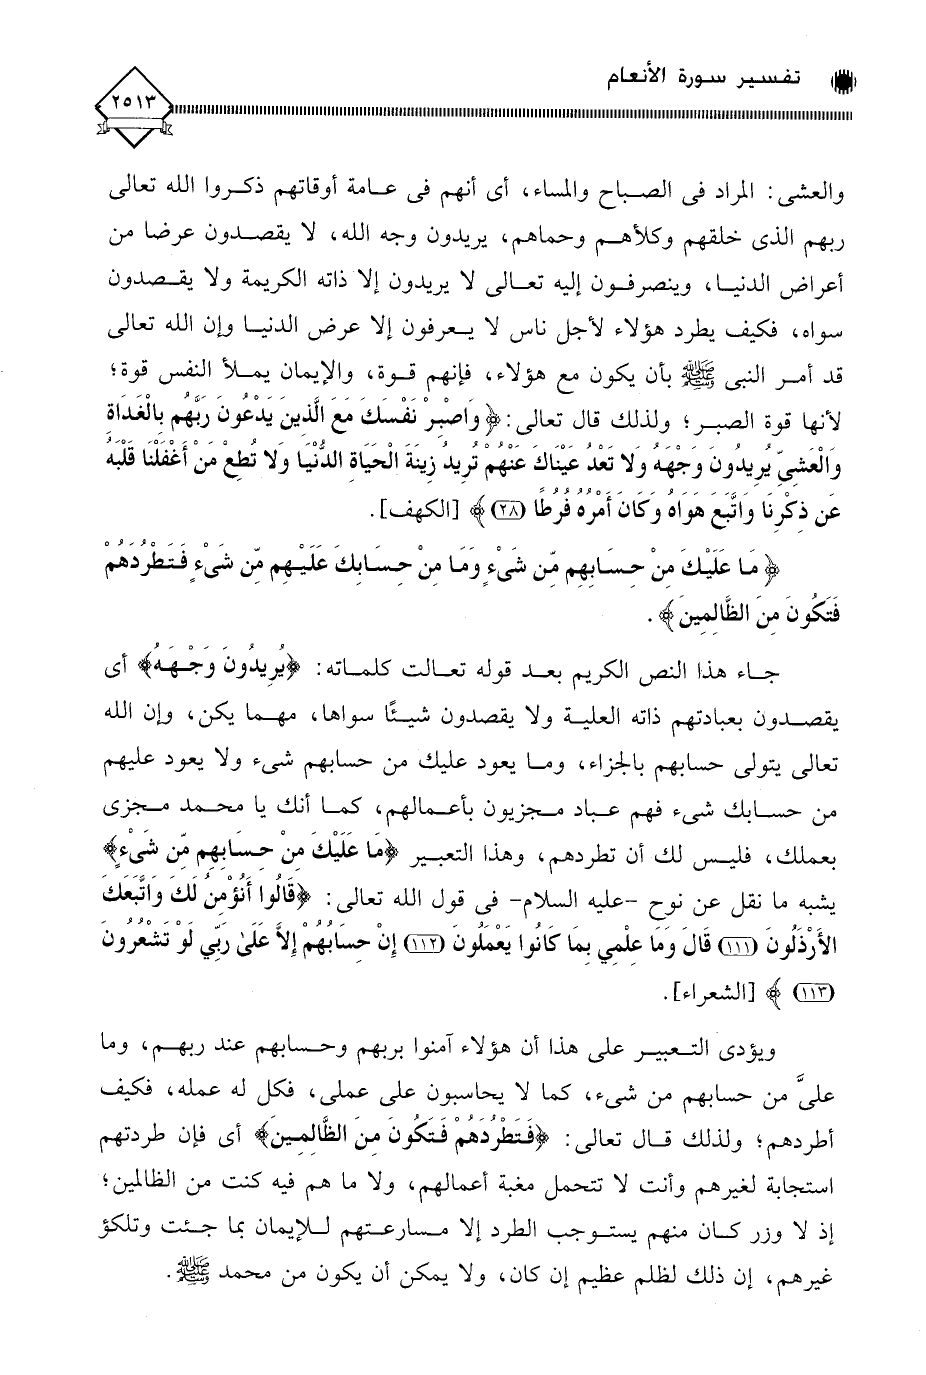 تفسير سورة الأنعام
٢٥١٣
والعشى: المراد فى الصباح والمساء، أى أنهم فى عامة أوقاتهم ذكروا الله تعالى
ربهم الذى خلقهم وكلأهم وحماهم، يريدون وجه الله، لا يقصدون عرضا من
أعراض الدنيا، وينصرفون إليه تعالى لا يريدون إلا ذاته الكريمة ولا يقصدون
سواه، فكيف يطرد هؤلاء لأجل ناس لا يعرفون إلا عرض الدنيا وإن الله تعالى
قد أمر النبى ﷺ بأن يكون مع هؤلاء، فإنهم قوة، والإيمان يملأ النفس قوة؛
لأنها قوة الصبر؛ ولذلك قال تعالى: ﴿وَاصْبِرْ نَفْسَكَ مَعَ الَّذِينَ يَدْعُونَ رَبَّهُم بِالْغَدَاةِ
وَالْعَشِيِّ يُرِيدُونَ وَجْهَهُ وَلا تَعْدُ عَيْنَاكَ عَنْهُمْ تُرِيدُ زِينَةَ الْحَيَاةِ الدُّنْيَا وَلا تُطِعْ مَنْ أَغْفَلْنَا قَلْبَهُ
عَن ذِكْرِنَا وَاتَّبَعَ هَوَاهُ وَكَانَ أَمْرُهُ فُرُطًا (٢٨)﴾ [الكهف].
﴿مَا عَلَيْكَ مِنْ حِسَابِهِم مِّن شَيْءٍ وَمَا مِنْ حِسَابِكَ عَلَيْهِم مِّن شَيْءٍ فَتَطْرُدَهُمْ
فَتَكُونَ مِنَ الظَّالِمِينَ﴾.
جاء هذا النص الكريم بعد قوله تعالت كلماته: ﴿يُرِيدُونَ وَجْهَهُ﴾ أى
يقصدون بعبادتهم ذاته العلية ولا يقصدون شيئًا سواها، مهما يكن، وإن الله
تعالى يتولى حسابهم بالجزاء، وما يعود عليك من حسابهم شىء ولا يعود عليهم
من حسابك شىء فهم عباد مجزيون بأعمالهم، كما أنك يا محمد مجزى
بعملك، فليس لك أن تطردهم، وهذا التعبير ﴿مَا عَلَيْكَ مِنْ حِسَابِهِم مِّن شَيْءٍ﴾
يشبه ما نقل عن نوح -عليه السلام- فى قول الله تعالى: ﴿قَالُوا أَنُؤْمِنُ لَكَ وَاتَّبَعَكَ
الأَرْذَلُونَ (١١١) قَالَ وَمَا عِلْمِي بِمَا كَانُوا يَعْمَلُونَ (١١٢) إِنْ حِسَابُهُمْ إِلاَّ عَلَىٰ رَبِّي لَوْ تَشْعُرُونَ
(١١٣)﴾ [الشعراء].
ويؤدى التعبير على هذا أن هؤلاء آمنوا بربهم وحسابهم عند ربهم، وما
علىَّ من حسابهم من شىء، كما لا يحاسبون على عملى، فكل له عمله، فكيف
أطردهم؛ ولذلك قال تعالى: ﴿فَتَطْرُدَهُمْ فَتَكُونَ مِنَ الظَّالِمِينَ﴾ أى فإن طردتهم
استجابة لغيرهم وأنت لا تتحمل مغبة أعمالهم، ولا ما هم فيه كنت من الظالمين؛
إذ لا وزر كان منهم يستوجب الطرد إلا مسارعتهم للإيمان بما جئت وتلكؤ
غيرهم، إن ذلك لظلم عظيم إن كان، ولا يمكن أن يكون من محمد ﷺ.